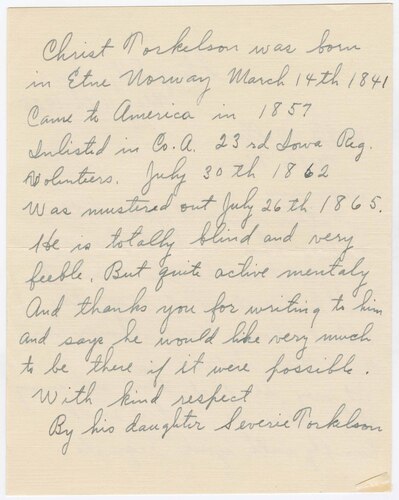 Christ Torkelson was born
in Etne Norway March 14th 1841
Came to America in 1857
Inlisted in Co. A. 23rd Iowa Reg.
Volunteers. July 30th 1862
Was mustered out July 26th 1865.
He is totally blind and very
feeble. But quite active mentaly
And thanks you for writing to him
and says he would like very much
to be there if it were possible.
With kind respect
By his daughter Severie Torkelson